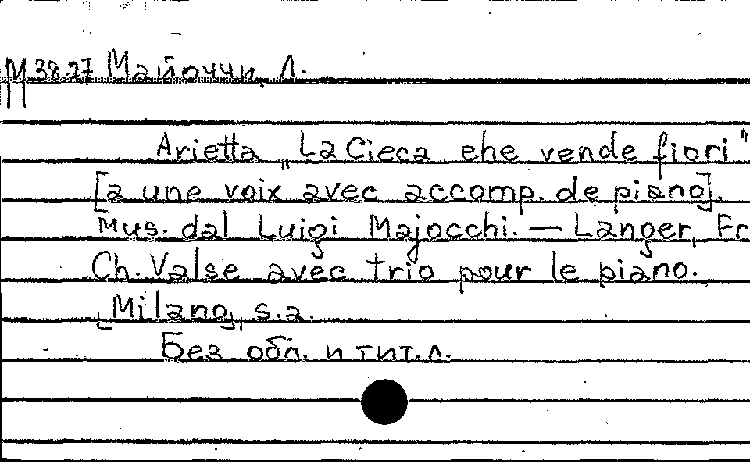 М3827 Майоччи, Л.
Arietta „La Cieca ehe vende fiori"
[a une voix avec accomp. de piano].
Mus. dal Luigi Majocchi. — Langer, Fc
Ch. Valse avec trio pour le piano.
[Milano], s.a.
Без обл. и тит. л.